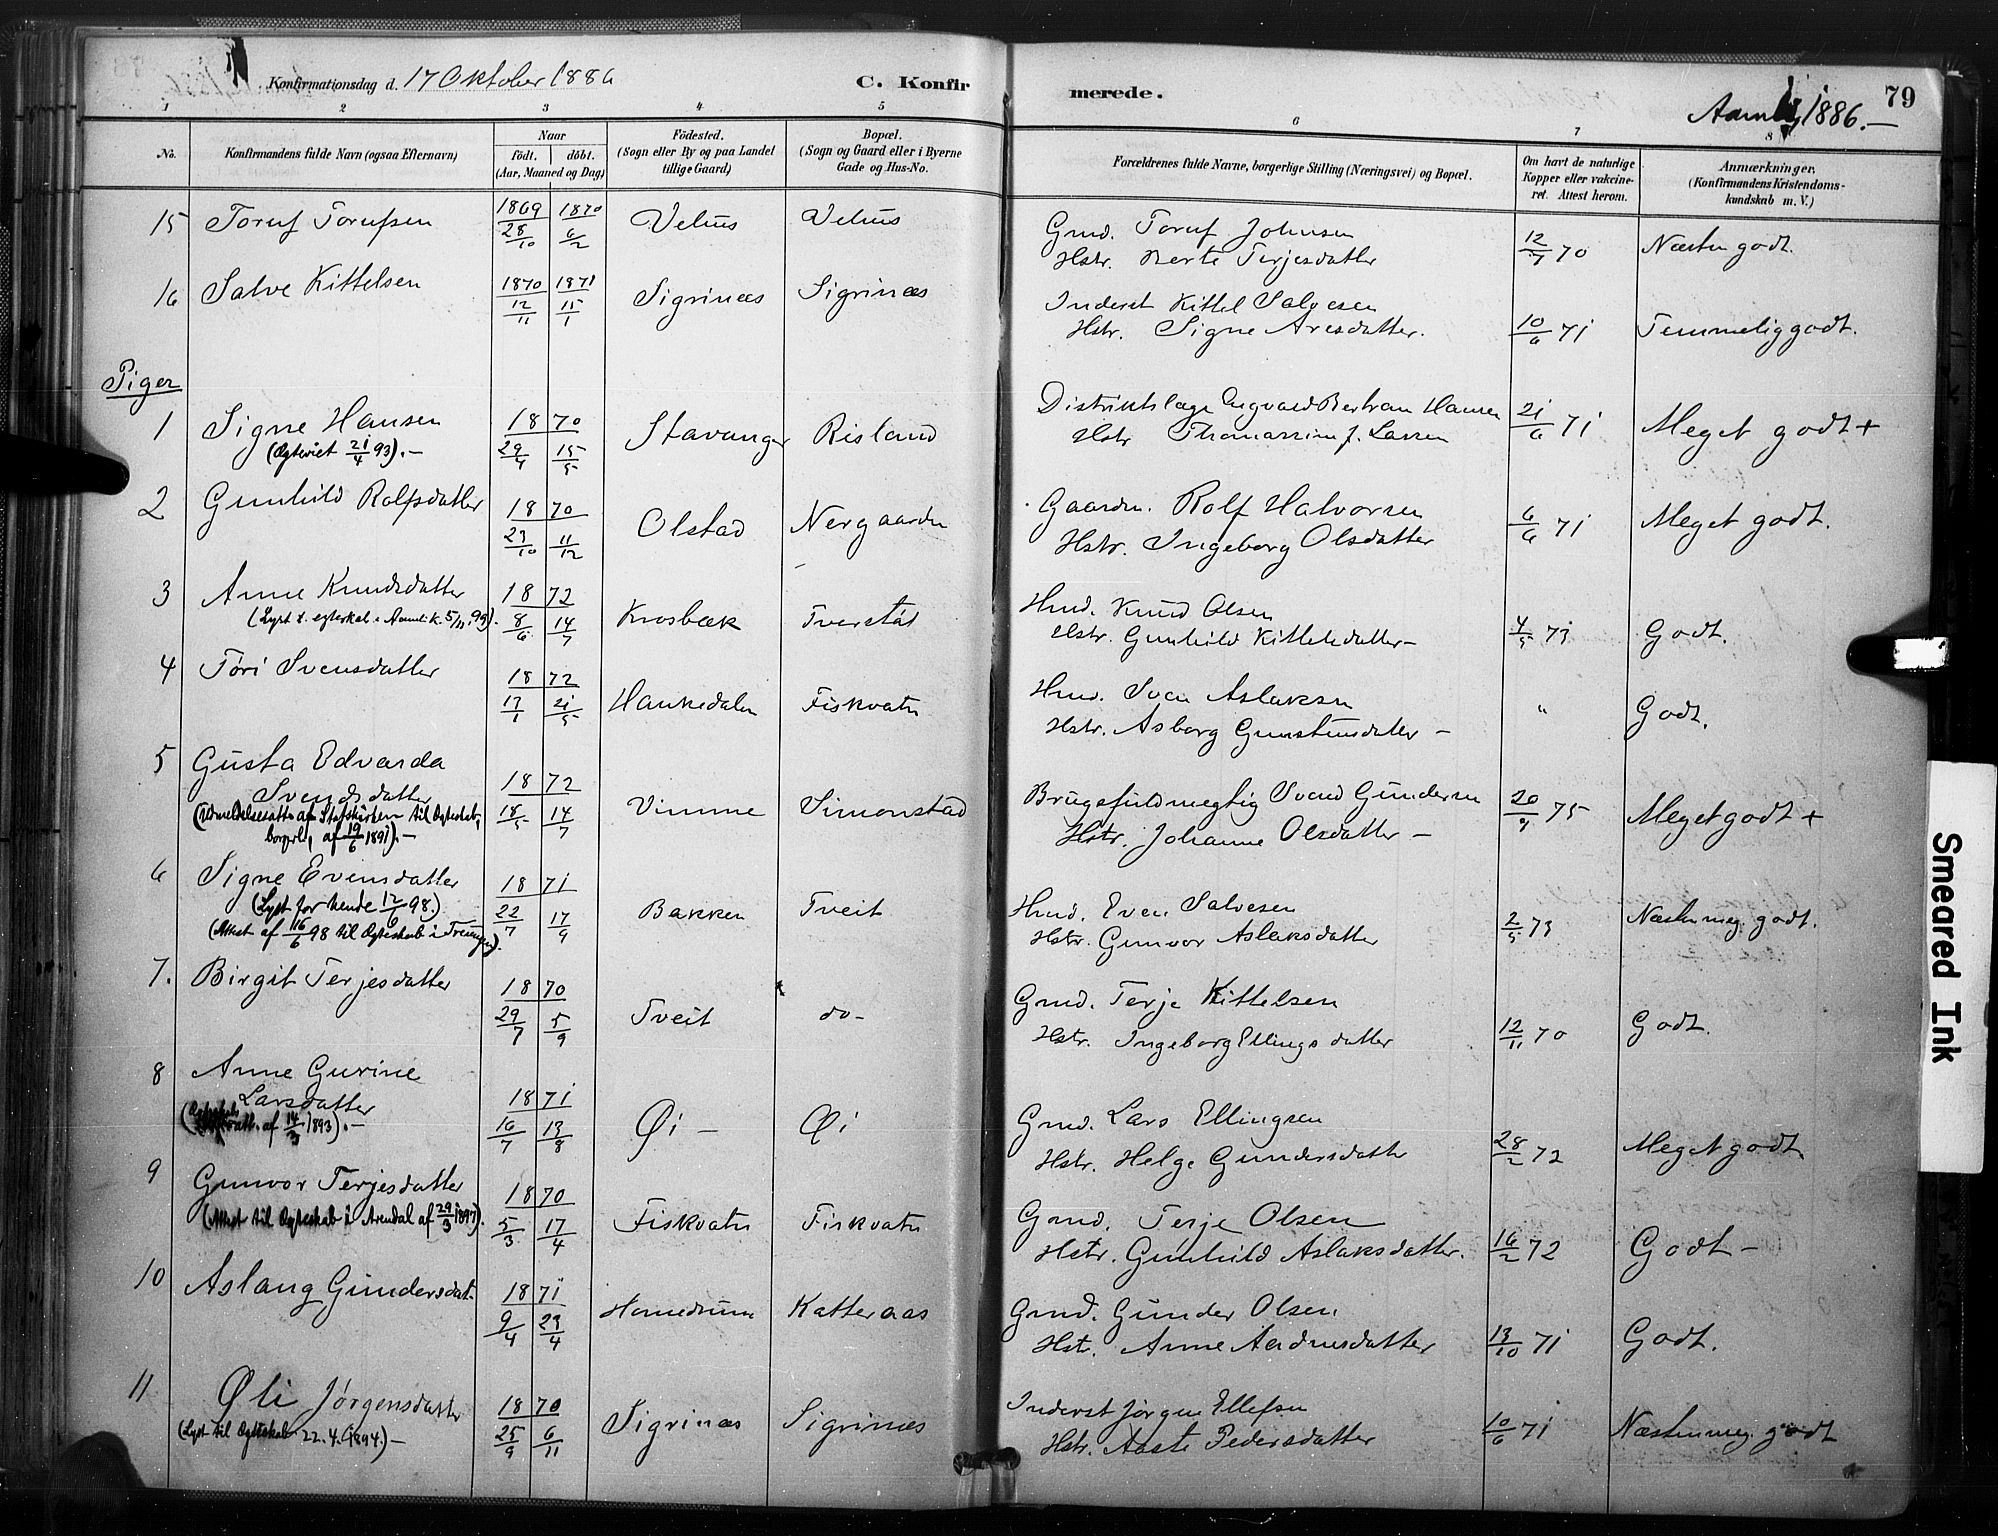 Konfirmationsdag d. 17 Oktober 1886
C. Konfirmerede.
Aamli, 1886.—
79
1 2 3 4 5 6 7 8
No.
Konfirmandens fulde Navn (ogsaa Efternavn)
Naar
födt. döbt.
(Aar, Maaned og Dag)
Födested.
(Sogn eller By og paa Landet
tillige Gaard)
Bopæl.
(Sogn og Gaard eller i Byerne
Gade og Hus-No.
Forældrenes fulde Navne, borgerlige Stilling (Næringsvei) og Bopæl.
Om havt de naturlige
Kopper eller vakcine-
ret. Attest herom.
Anmærkninger.
(Konfirmandens Kristendoms-
kundskab m. V.)
15 Toruf Torufsen 1869 28/10 1870 6/2 Velius Velius
Gmd. Toruf Johnsen
Hstr. Berte Terjesdatter 12/7 70 Næsten godt.
16 Salve Kittelsen 1870 12/11 1871 15/1 Sigrinæs Sigrinæs
Inderst Kittel Salvesen
Hstr. Signe Aresdatter. 10/6 71 Temmelig godt.
Piger
1 Signe Hansen 1870 29/4 15/5 Stavanger Risland
(Ægteviet 21/4 93).—
Distriktslæge Ingvald Bertram Hansen
Hstr Thomassine J. Larsen 21/6 71 Meget godt +
2 Gunhild Rolfsdatter 1870 23/10 11/12 Olstad Nergaarden
Gaardm. Rolf Halvorsen
Hstr. Ingeborg Olsdatter 6/6 71 Meget godt.
3 Anne Knudsdatter 1872 8/6 14/7 Krosbæk Tverstøl
(Lyst t. egteskab i Aamli k. 5/11 99).
Hmd. Knud Olsen
Hstr. Gunhild Kittelsdatter— 4/5 73 Godt.
4 Tøri Svensdatter 1872 17/1 21/5 Haukedalen Fiskvatn
Hmd. Sven Aslaksen
Hstr. Asborg Gunstensdatter — " Godt.
5 Gusta Edvarda
Svendsdatter 1872 18/5 14/7 Vimme Simonstad
(Udmeldelsesatt. af Statskirken til Ægteskab,
borgerl., af 19/6 1891).—
Brugsfuldmægtig Svend Gundersen
Hstr. Johanne Olsdatter — 20/9 75 Meget godt +
6 Signe Evensdatter 1871 22/7 17/9 Bakken Tveit
(Lyst for hende 12/6 98.)
(Attest af 16/6 98 til Ægteskab i Treungen).
Hmd. Even Salvesen
Hstr. Gunvor Aslaksdatter 2/5 73 Næsten meg. godt.
7. Birgit Terjesdatter 1870 29/7 5/9 Tveit do-
Gmd. Terje Kittelsen
Hstr. Ingeborg Ellingsdatter 12/11 70 Godt.
8 Anne Gurine
Larsdatter 1871 16/7 13/8 Øi — Øi
(Ægteskabs att. af 14/3 1893).—
Gmd. Lars Ellingsen
Hstr. Helge Gundersdatter 28/2 72 Meget godt.
9 Gunvor Terjesdatter 1870 5/3 17/4 Fiskvatn Fiskvatn
(Attest til Ægteskab i Arendal af 29/3 1897).
Gmd. Terje Olsen
Hstr. Gunhild Aslaksdatter. 16/2 72 Godt —
10 Aslaug Gundersdat. 1871 9/4 23/4 Homedrum Katteraas
Gmd. Gunder Olsen
Hstr. Anne Aadnesdatter 13/10 71 Godt.
11 Øli Jørgensdatter 1870 25/9 6/11 Sigrinæs Sigrinæs
(Lyst til Ægteskab 22.4.1894.)—
Inderst Jørgen Ellefsen
Hstr. Aaste Pedersdatter 10/6 71 Næsten meg. godt
Smeared Ink